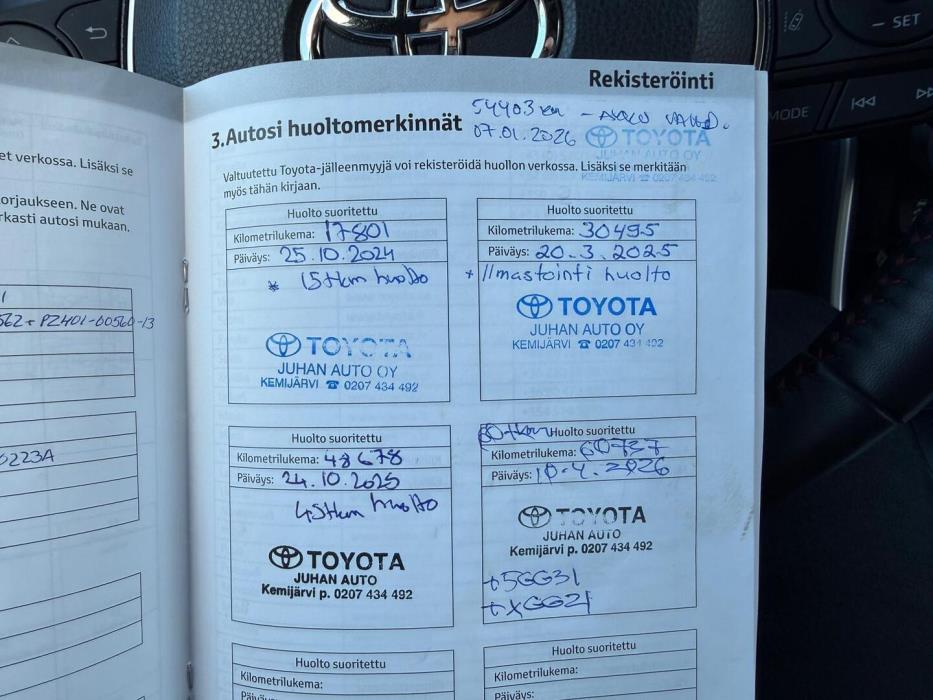 SET
MODE
Rekisteröinti
et verkossa. Lisäksi se
orjaukseen. Ne ovat
rkasti autosi mukaan.
562 + PZ401-00560-13
0223A
3.Autosi huoltomerkinnät
54403 km
07.01.2026
TOYOTA
JUHAN AUTO OY
KEMIJÄRVI ☎ 0207 434 492
Valtuutettu Toyota-jälleenmyyjä voi rekisteröidä huollon verkossa. Lisäksi se merkitään
myös tähän kirjaan.
Huolto suoritettu
Kilometrilukema: 17801
Päiväys: 25.10.2024
* 15tkm huolto
TOYOTA
JUHAN AUTO OY
KEMIJÄRVI ☎ 0207 434 492
Huolto suoritettu
Kilometrilukema: 30495
Päiväys: 20.3.2025
+ Ilmastointi huolto
TOYOTA
JUHAN AUTO OY
KEMIJÄRVI ☎ 0207 434 492
Huolto suoritettu
Kilometrilukema: 48678
Päiväys: 24.10.2025
45tkm huolto
TOYOTA
JUHAN AUTO
Kemijärvi p. 0207 434 492
60tkm Huolto suoritettu
Kilometrilukema: 60737
Päiväys: 10.4.2026
TOYOTA
JUHAN AUTO
Kemijärvi p. 0207 434 492
+5GG31
+XGG21
Huolto suoritettu
Kilometrilukema:
Päiväys:
Huolto suoritettu
Kilometrilukema:
Päiväys: